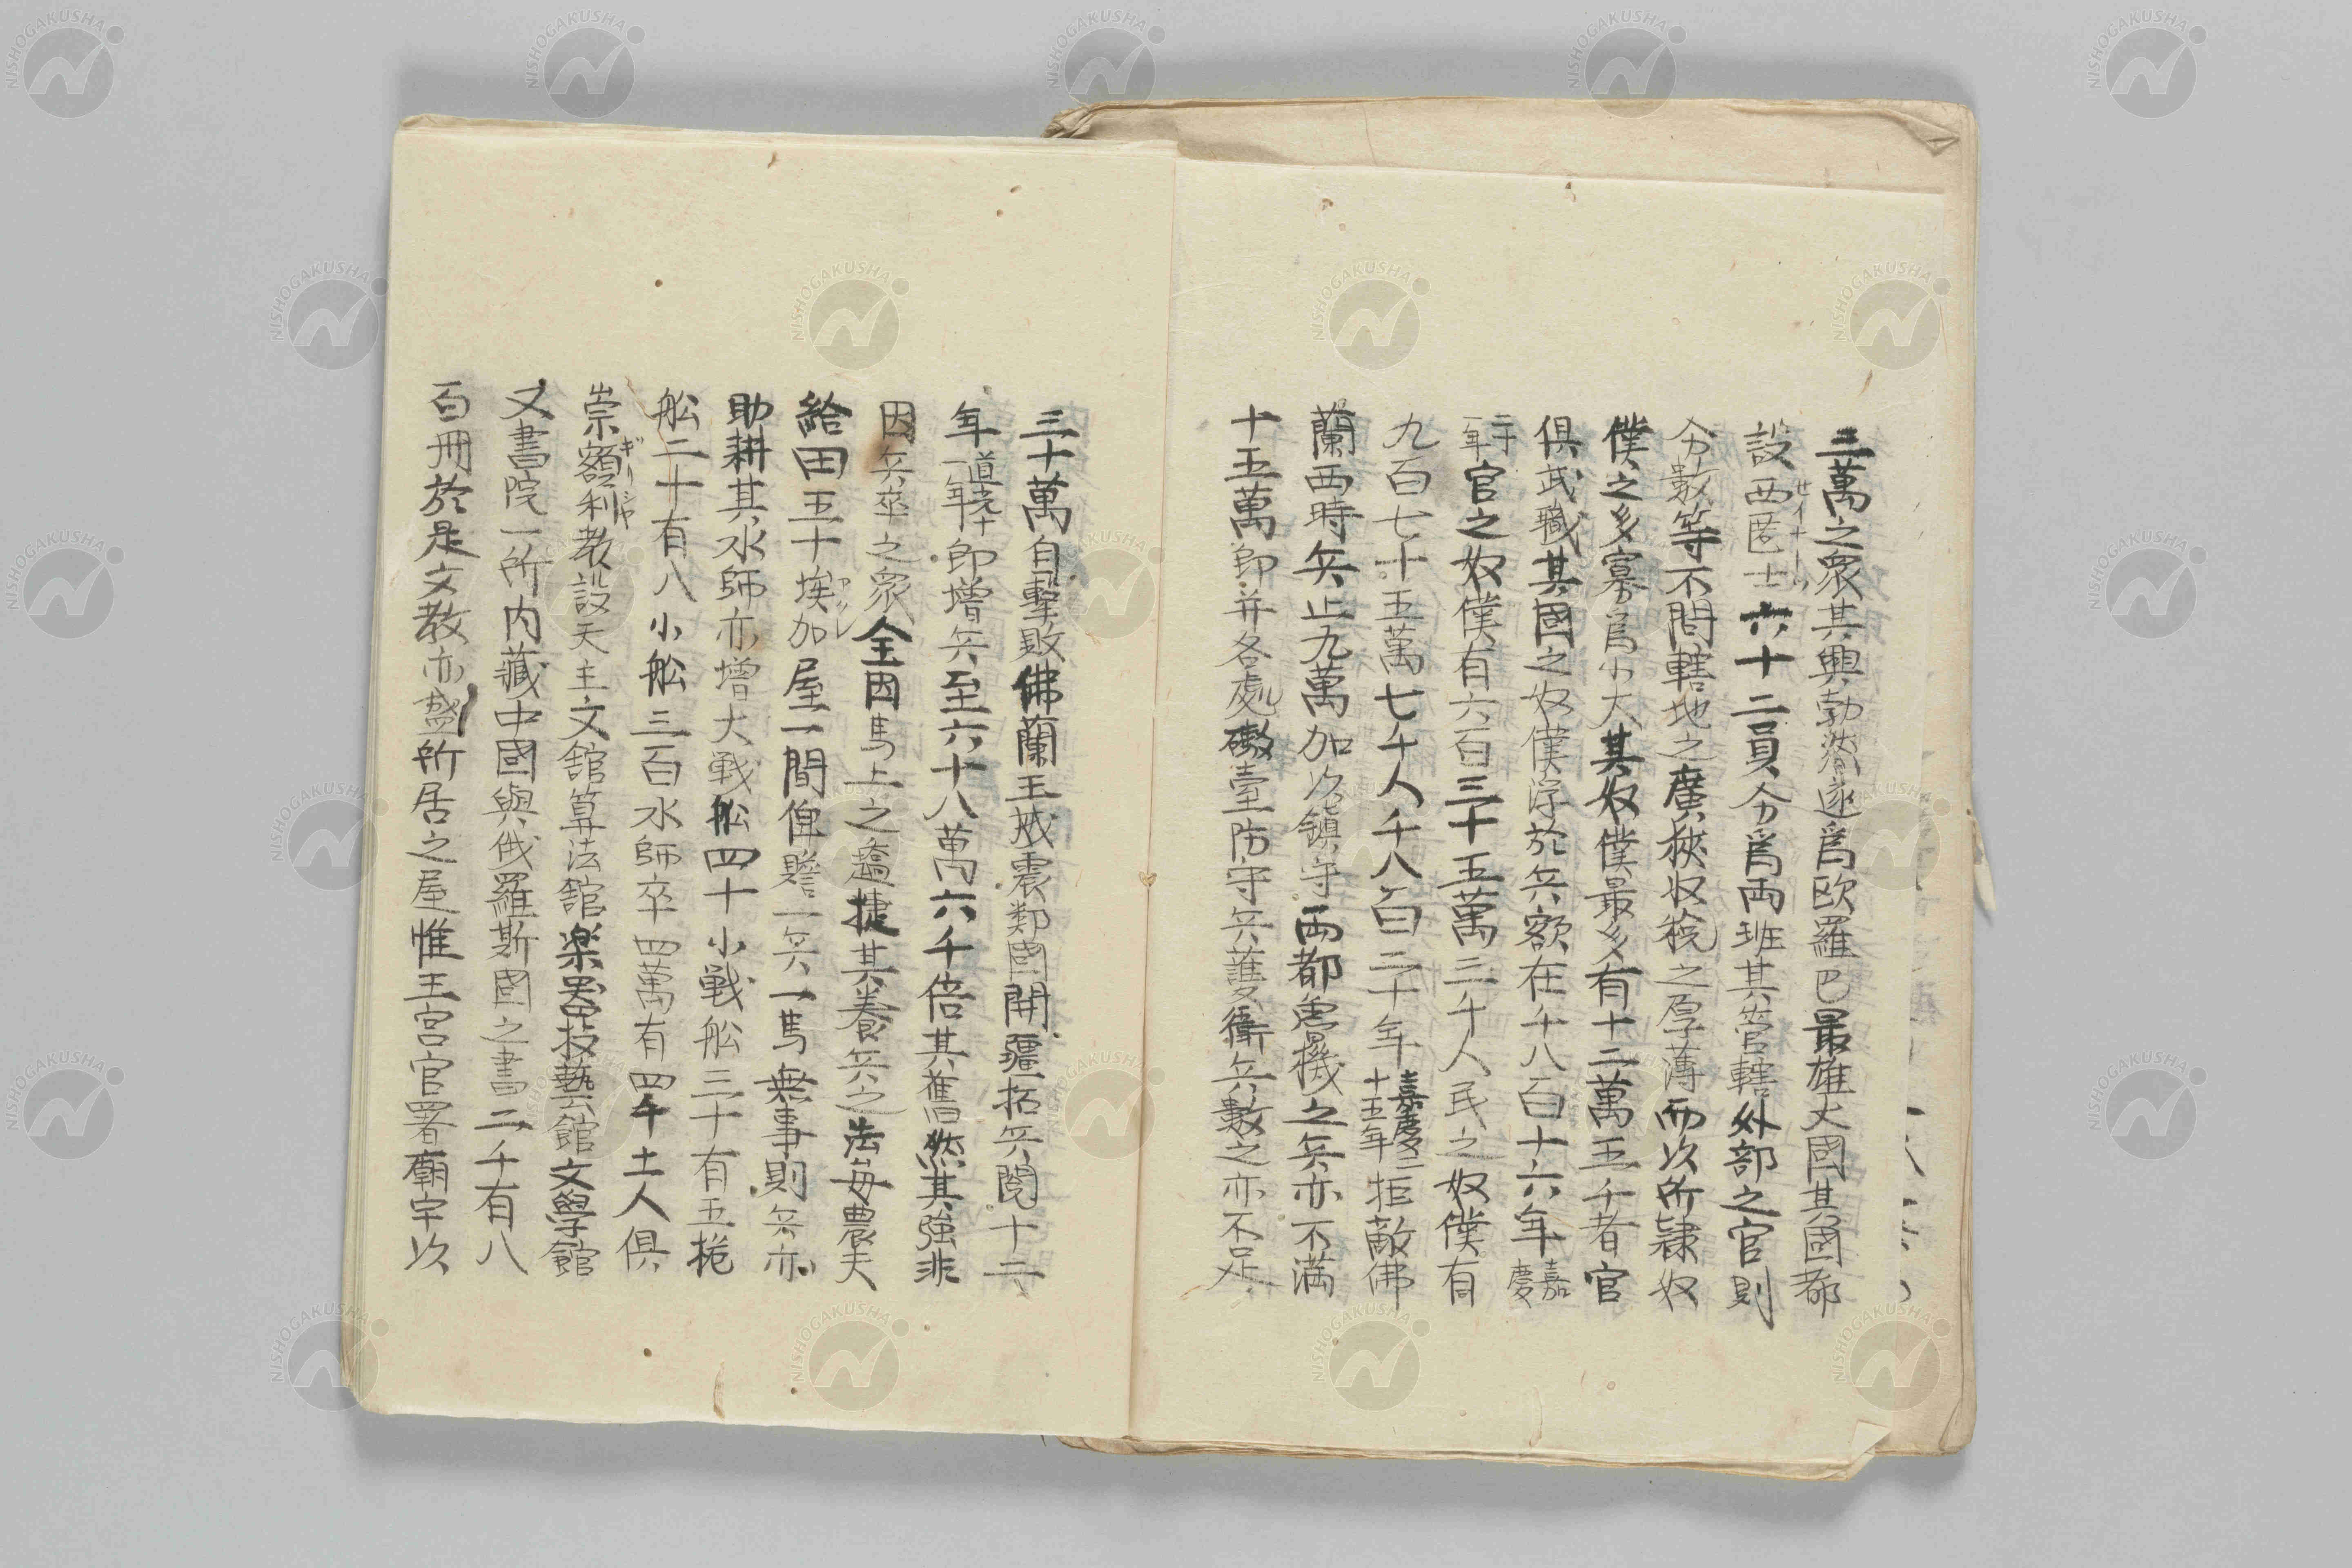 三萬之衆其興勃浡遂爲欧羅巴最雄大國其國都
設西匿士六十二員分爲両班其官轄外部之官則
セイナートル
分数等不問轄地之廣狹収税之厚薄而以所隷奴
僕之多寡爲小大其奴僕最多有十二萬五千者官
俱武職其國之奴僕浮於兵額在千八百十六年嘉慶
二十一年官之奴僕有六百三十五萬三千人民之奴僕有
九百七十五萬七千人千八百二十年嘉慶二十五年拒敵佛
蘭西時兵止九萬加以鎮守両都魯機之兵亦不満
十五萬即并各處礮臺防守兵護衛兵数之亦不足
三十萬自擊敗佛蘭王威震鄰國開疆拓兵閲十二
年道光十一年即增兵至六十八萬六千倍其舊然其強非
因兵卒之衆全因馬上之趫捷其養兵之法每農夫
給田五十埃加屋一間俾贍一兵一馬無事則兵亦
アクレ
助耕其水師亦增大戦舩四十小戦舩三十有五桅
舩二十有八小舩三百水師卒四萬有四千土人俱
崇額利教設天主文舘算法舘楽器技藝舘文學舘
ぎりしや
又書院一所内藏中國與俄羅斯國之書二千有八
百冊於是文教亦盛所居之屋惟王宮官署廟宇以
NISHOGAKUSHA